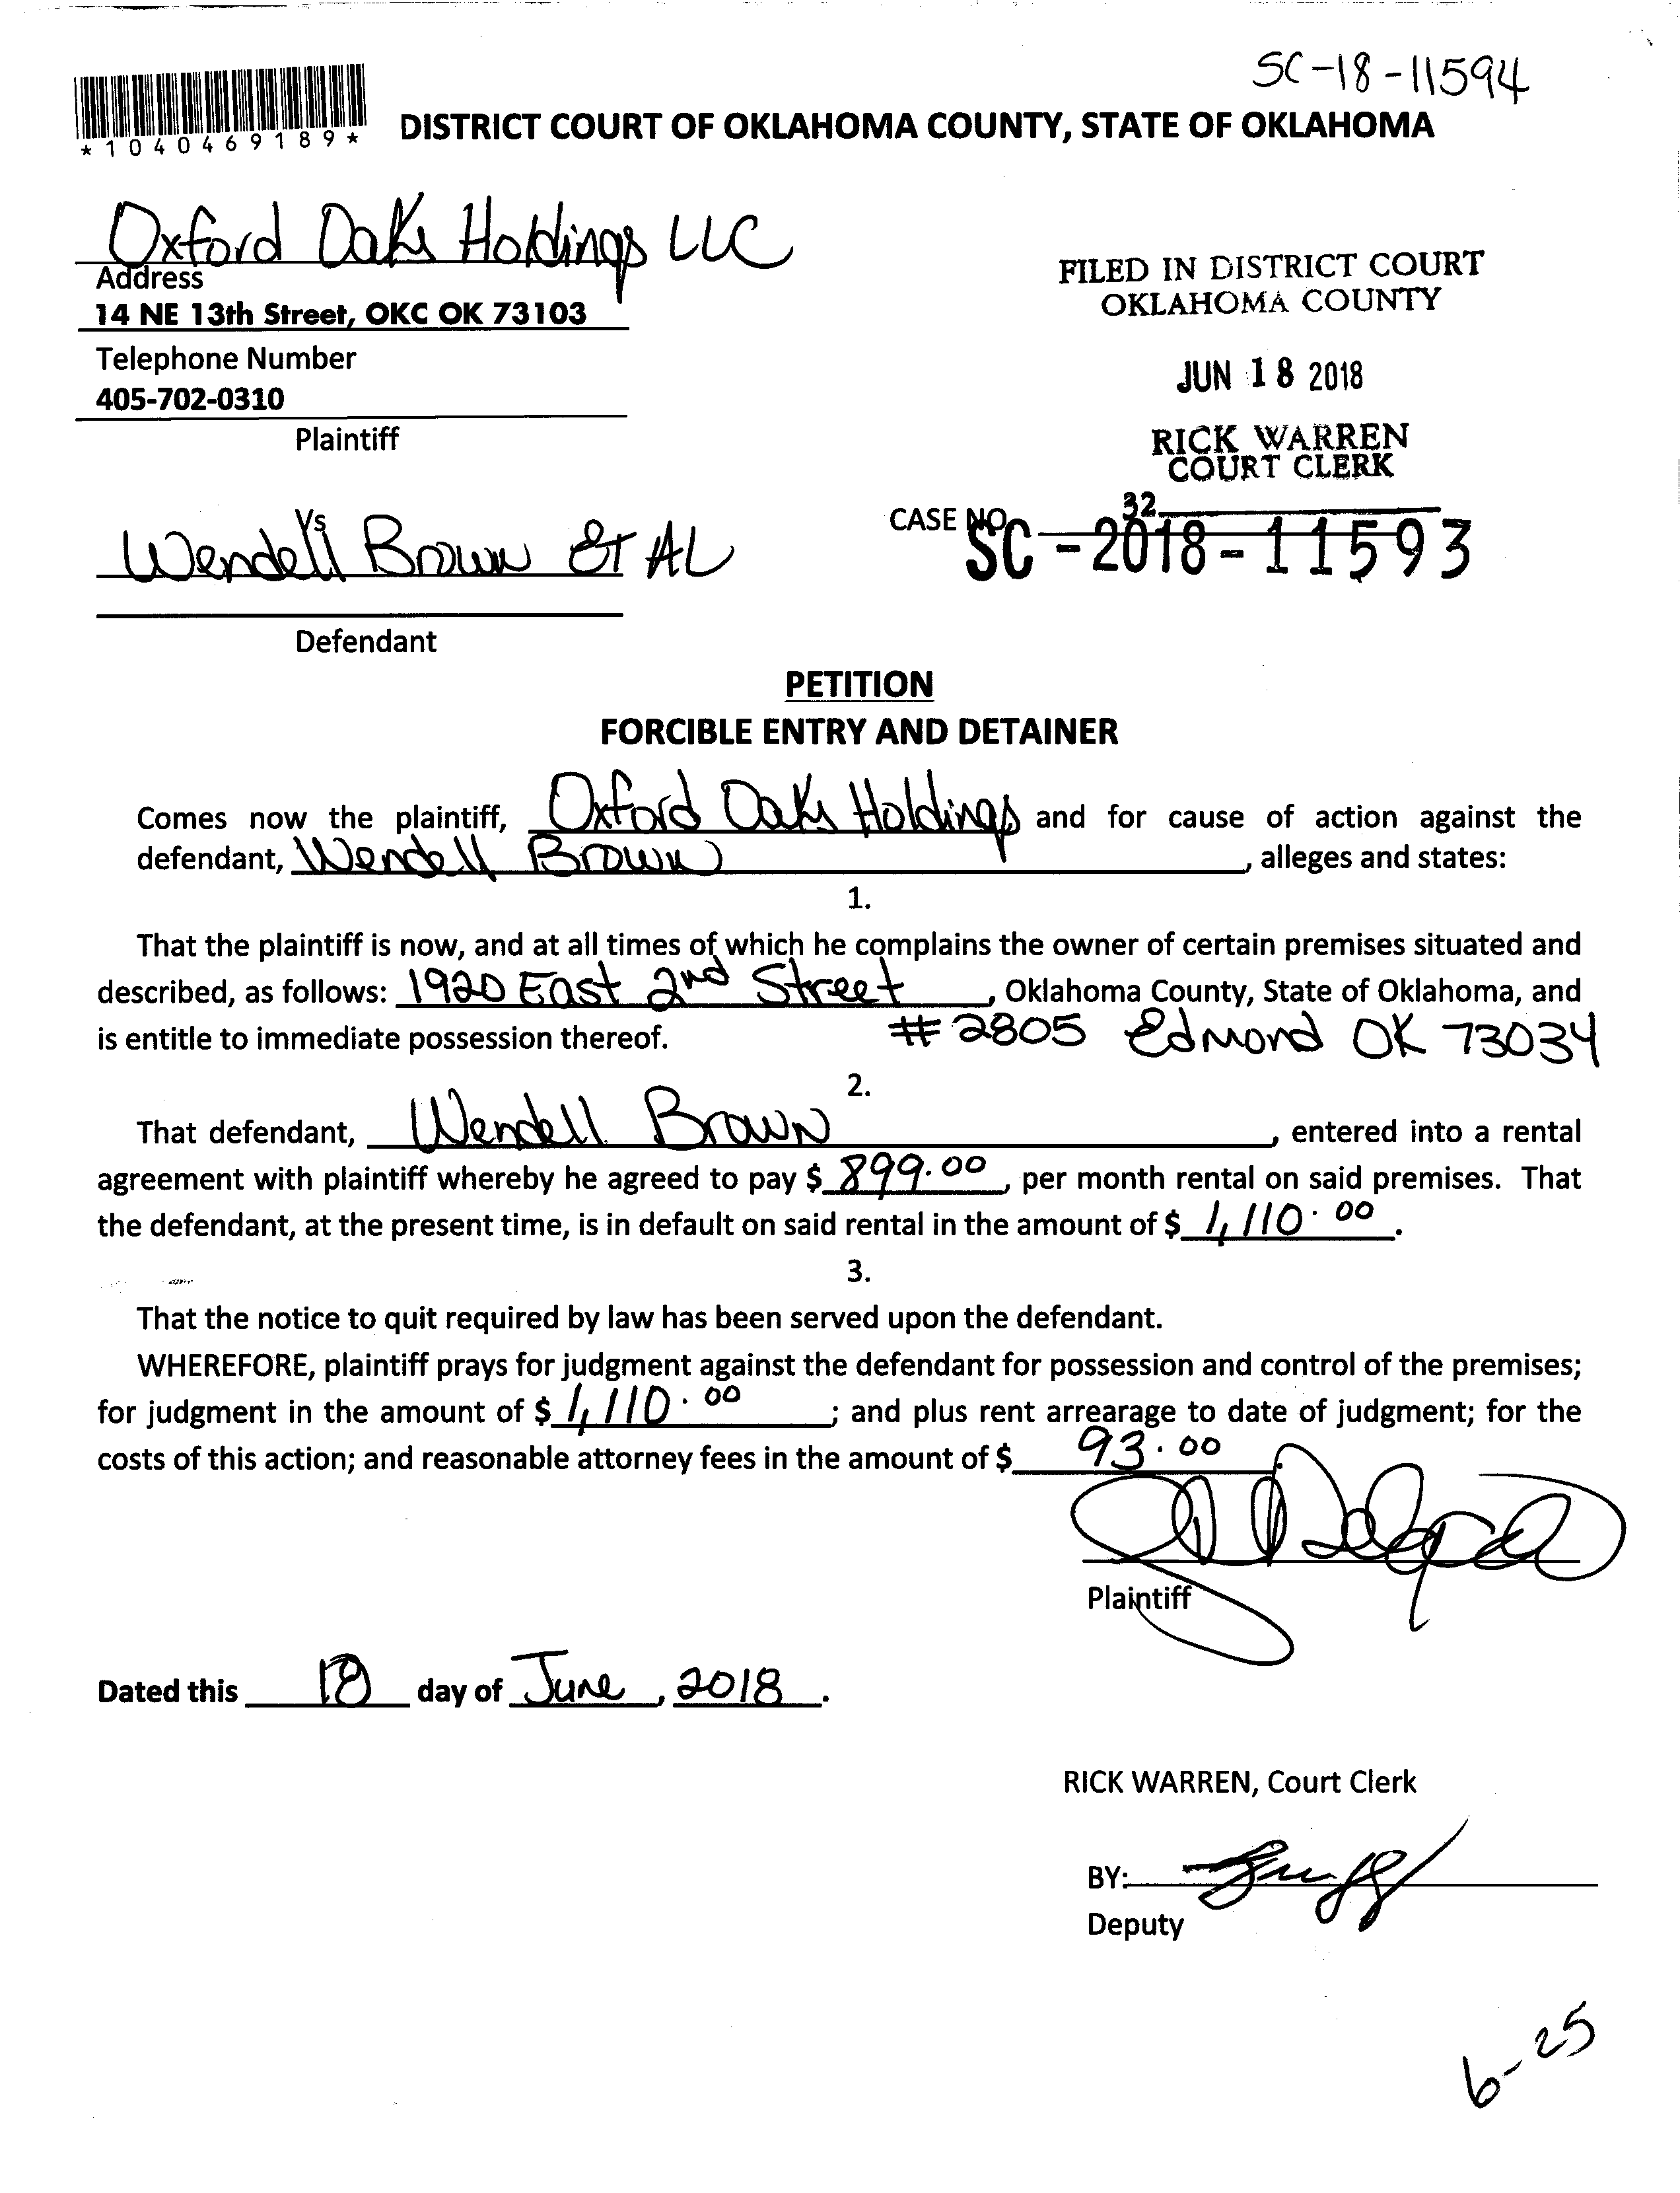 SC-18-11594
*1040469189*
DISTRICT COURT OF OKLAHOMA COUNTY, STATE OF OKLAHOMA
Oxford Oaks Holdings LLC
Address
14 NE 13th Street, OKC OK 73103
Telephone Number
405-702-0310
Plaintiff
FILED IN DISTRICT COURT
OKLAHOMA COUNTY
JUN 18 2018
RICK WARREN
COURT CLERK
32
Vs
Wendell Brown ET AL
CASE NO. SC-2018-11593
Defendant
PETITION
FORCIBLE ENTRY AND DETAINER
Comes now the plaintiff, Oxford Oaks Holdings and for cause of action against the
defendant, Wendell Brown, alleges and states:
1.
That the plaintiff is now, and at all times of which he complains the owner of certain premises situated and
described, as follows: 1920 East 2nd Street, Oklahoma County, State of Oklahoma, and
is entitle to immediate possession thereof. # 2805 Edmond OK 73034
2.
That defendant, Wendell Brown, entered into a rental
agreement with plaintiff whereby he agreed to pay $ 899.00, per month rental on said premises. That
the defendant, at the present time, is in default on said rental in the amount of $ 1,110.00.
3.
That the notice to quit required by law has been served upon the defendant.
WHEREFORE, plaintiff prays for judgment against the defendant for possession and control of the premises;
for judgment in the amount of $ 1,110.00; and plus rent arrearage to date of judgment; for the
costs of this action; and reasonable attorney fees in the amount of $ 93.00.
Plaintiff
Dated this 18 day of June, 2018.
RICK WARREN, Court Clerk
BY:
Deputy
6-25